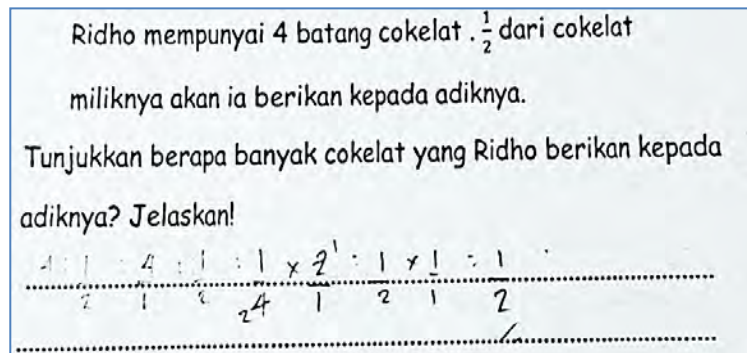 Ridho mempunyai 4 batang cokelat . 1/2 dari cokelat
miliknya akan ia berikan kepada adiknya.
Tunjukkan berapa banyak cokelat yang Ridho berikan kepada
adiknya? Jelaskan!
4 : 1/2 : 4/1 : 1/2 : 1/24 x 2¹/1 : 1/2 x 1/1 : 1/2